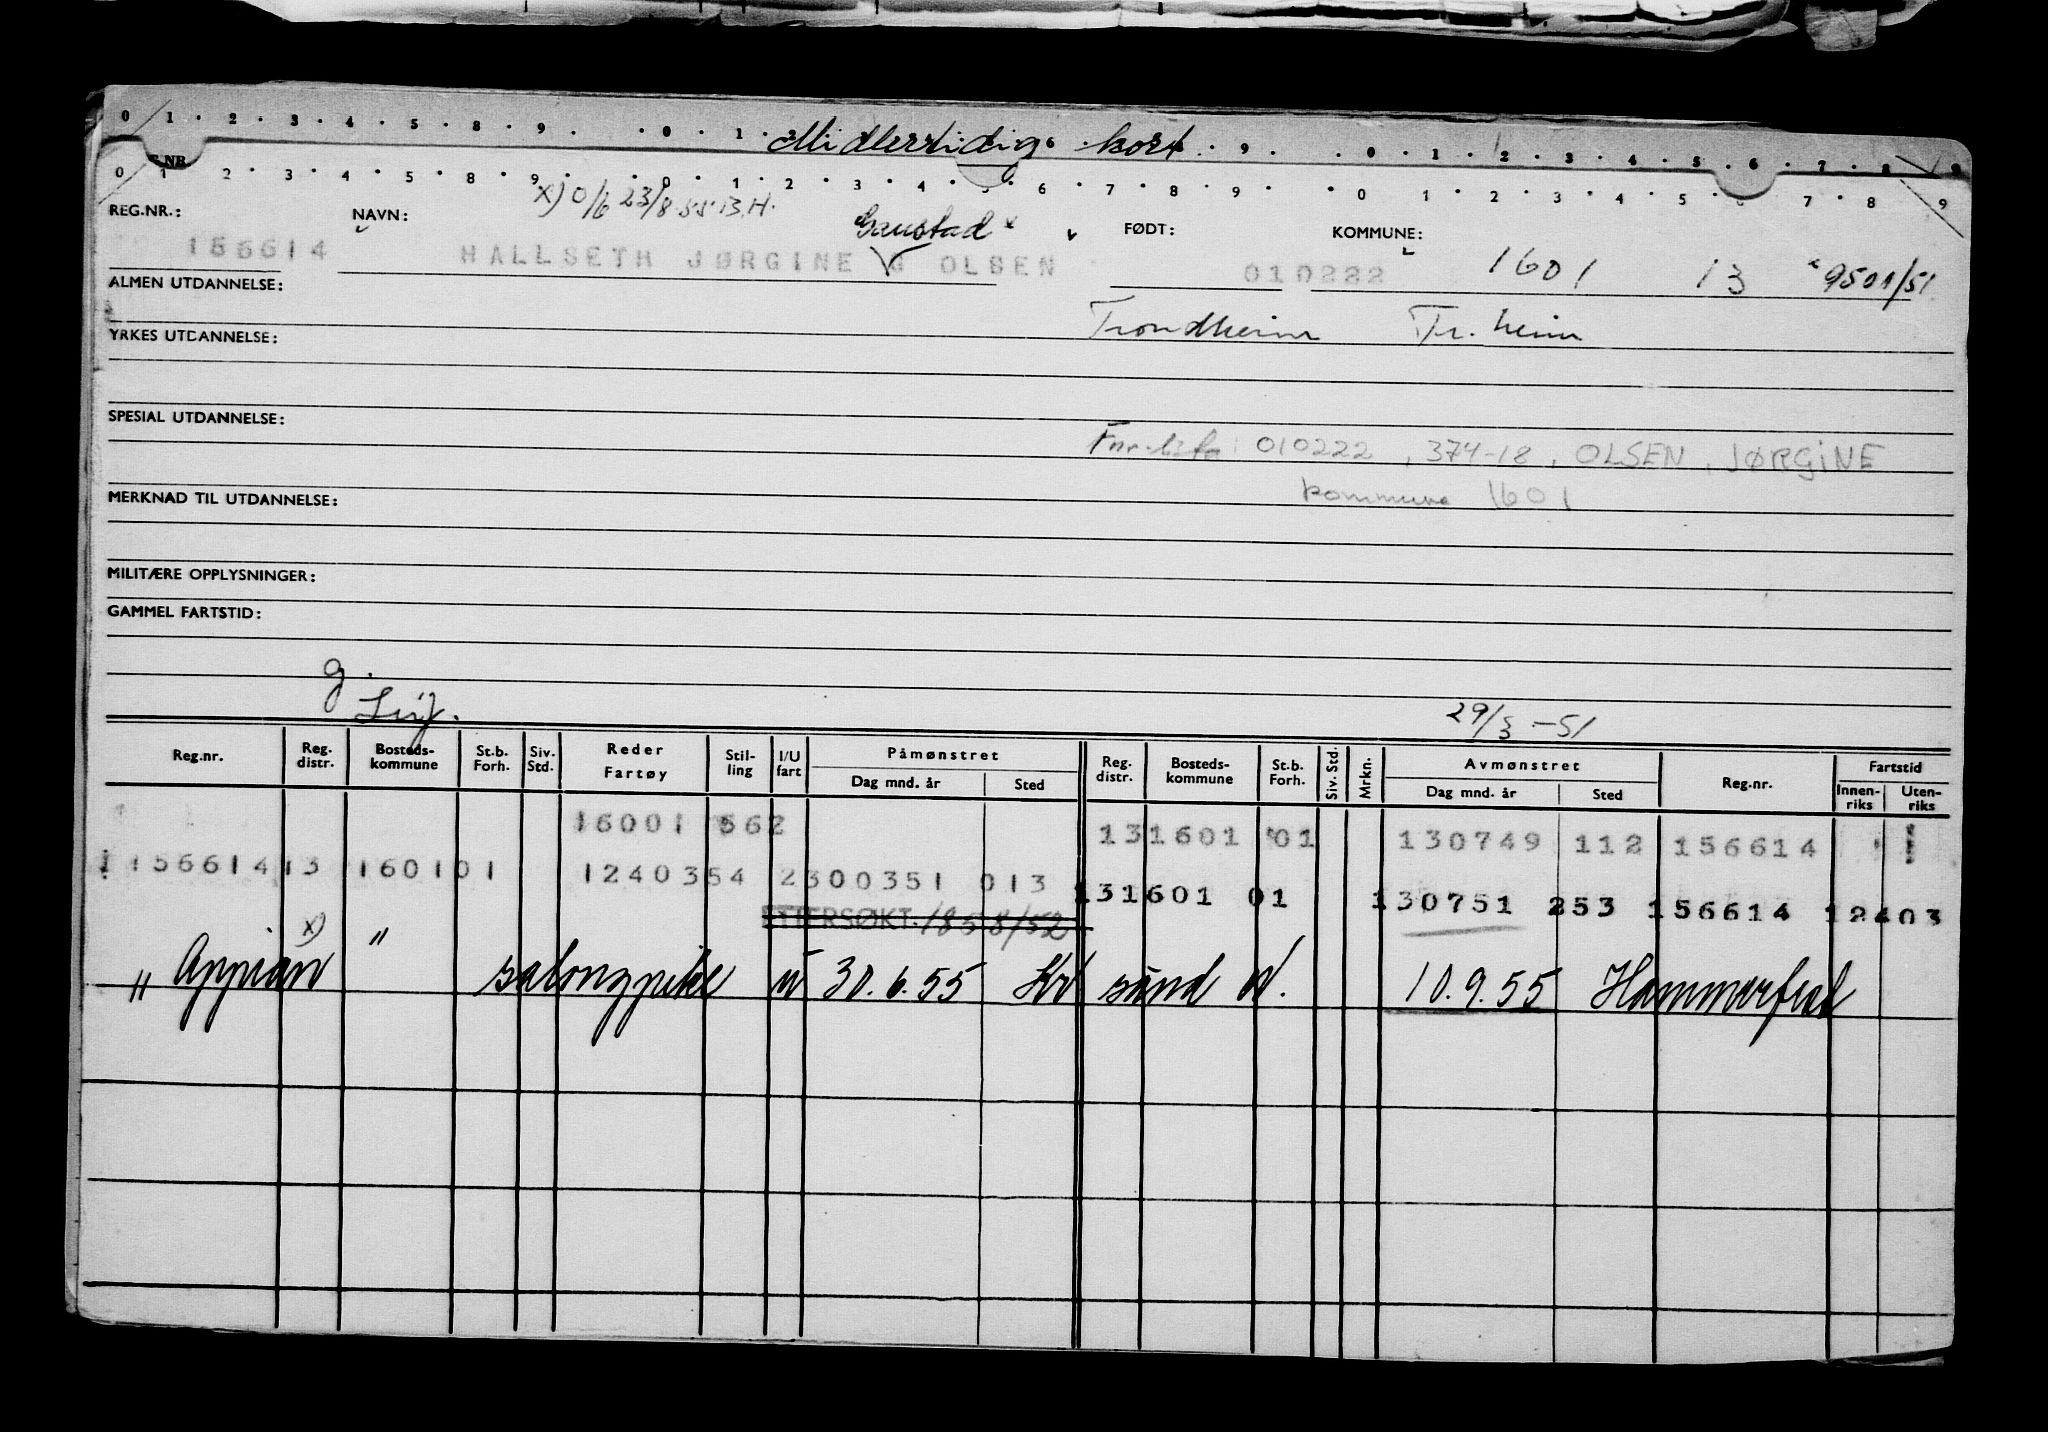 0 1 · 2 · 3 · 4 · 5 · 8 · 9 · · 0 · 1 · Midlertidig kort · 9 · · 0 · 1 · 2 · 3 · 4 · 5 · 6 · 7 · 8 · 9
NR
0 1 2 · 3 · 4 · 5 · 8 · 9 · 0 · 1 · 2 · 3 · 4 · 5 · 6 · 7 · 8 · 9 · · 0 1 · 2 · 3 · 4 · 5 · 7 · 8 · 9
X) O/6 23/8-55 B.H.
REG.NR.: NAVN: Gaustad FØDT: KOMMUNE:
156614 HALLSETH JØRGINE G OLSEN 010222 1601 13 9501/51
ALMEN UTDANNELSE:
Trondheim Tr.heim
YRKES UTDANNELSE:
SPESIAL UTDANNELSE:
010222, 374-18, OLSEN, JØRGINE
kommune 1601
MERKNAD TIL UTDANNELSE:
MILITÆRE OPPLYSNINGER:
GAMMEL FARTSTID:
g.
29/3-51
Reg.nr. Reg. distr. Bosteds-kommune St.b. Forh. Siv. Std. Reder Fartøy Stil-ling I/U fart Påmønstret Dag mnd. år Sted Reg. distr. Bosteds-kommune St.b. Forh. Siv. Std. Mrkn. Avmønstret Dag mnd. år Sted Reg.nr. Fartstid Innen-riks Uten-riks
16001 562 131601 01 130749 112 156614
156614 13 1601 01 1240354 2300351 013 131601 01 130751 253 156614 12403
ETTERSØKT. 18 5 8/52
x) "
" Appian salongpike u 30.6.55 Kr sund N. 10.9.55 Hammerfest